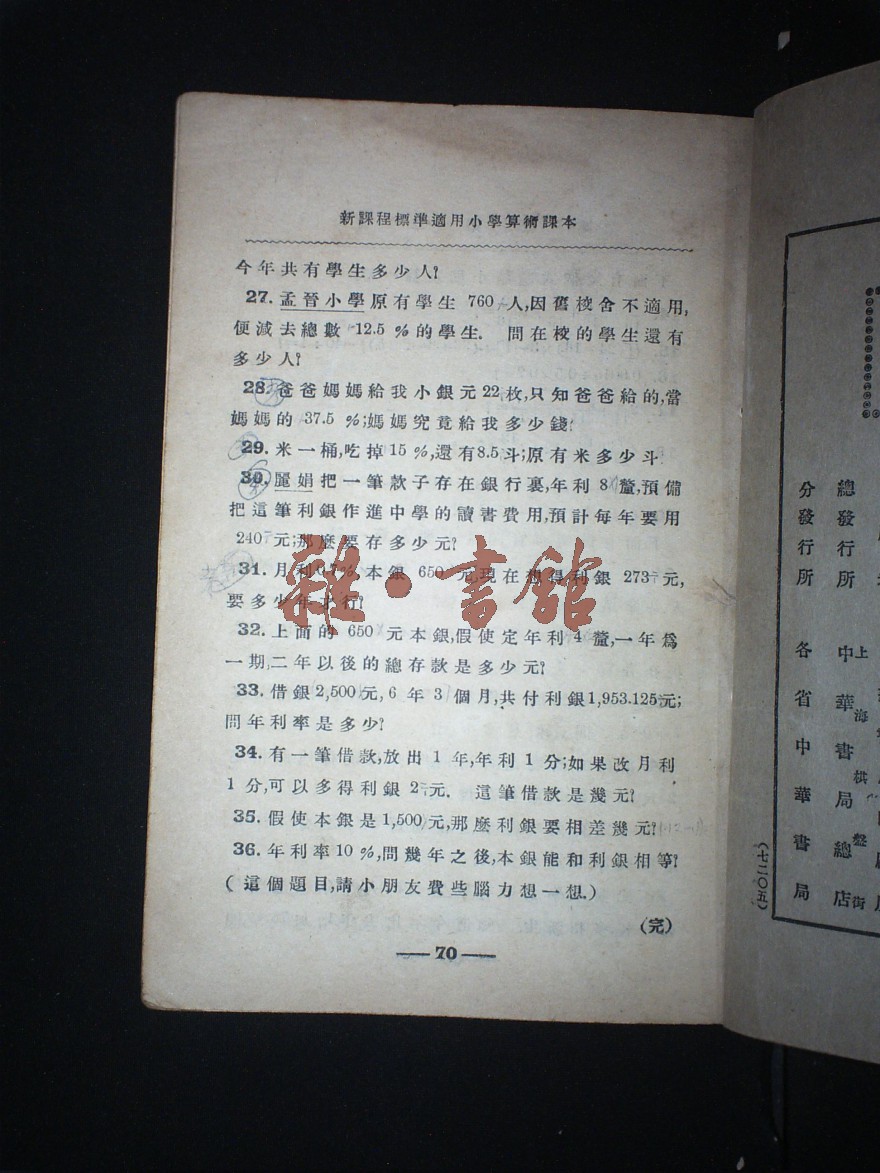 新課程標準適用小學算術課本
今年共有學生多少人?
27. 孟晉小學原有學生 760 人,因舊校舍不適用,
便減去總數 12.5 %的學生. 問在校的學生還有
多少人?
28. 爸爸媽媽給我小銀元22枚,只知爸爸給的,當
媽媽的 37.5 %;媽媽究竟給我多少錢?
29. 米一桶,吃掉15 %,還有8.5斗;原有米多少斗
30. 麗娟把一筆款子存在銀行裏,年利 8 釐,預備
把這筆利銀作進中學的讀書費用,預計每年要用
240元;那麼要存多少元?
31. 月利0.7%本銀 650 元,現在想得利銀 273 元,
要多少年才行?
32. 上面的 650 元本銀,假使定年利 4 釐,一年爲
一期,二年以後的總存款是多少元?
33. 借銀2,500元, 6 年 3 個月,共付利銀1,953.125元;
問年利率是多少?
34. 有一筆借款,放出 1 年,年利 1 分;如果改月利
1 分,可以多得利銀 2 元. 這筆借款是幾元?
35. 假使本銀是1,500元,那麽利銀要相差幾元?
36. 年利率10 %,問幾年之後,本銀能和利銀相等?
(這個題目,請小朋友費些腦力想一想.)
(完)
— 70 —
雜·書館
總發行所
分發行所
上海棋盤街
中華書局總店
各省中華書局
(七二〇五)